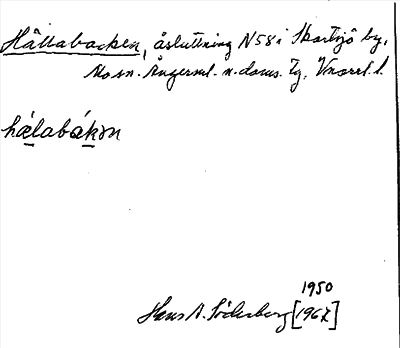 Hållabacken, åsluttning N58 i Skartsjö by,
Åsn. Ångerml. n. doms. Tg. Vnorrl. l.
hálabákən
1950
Hans A. Söderberg [1967]